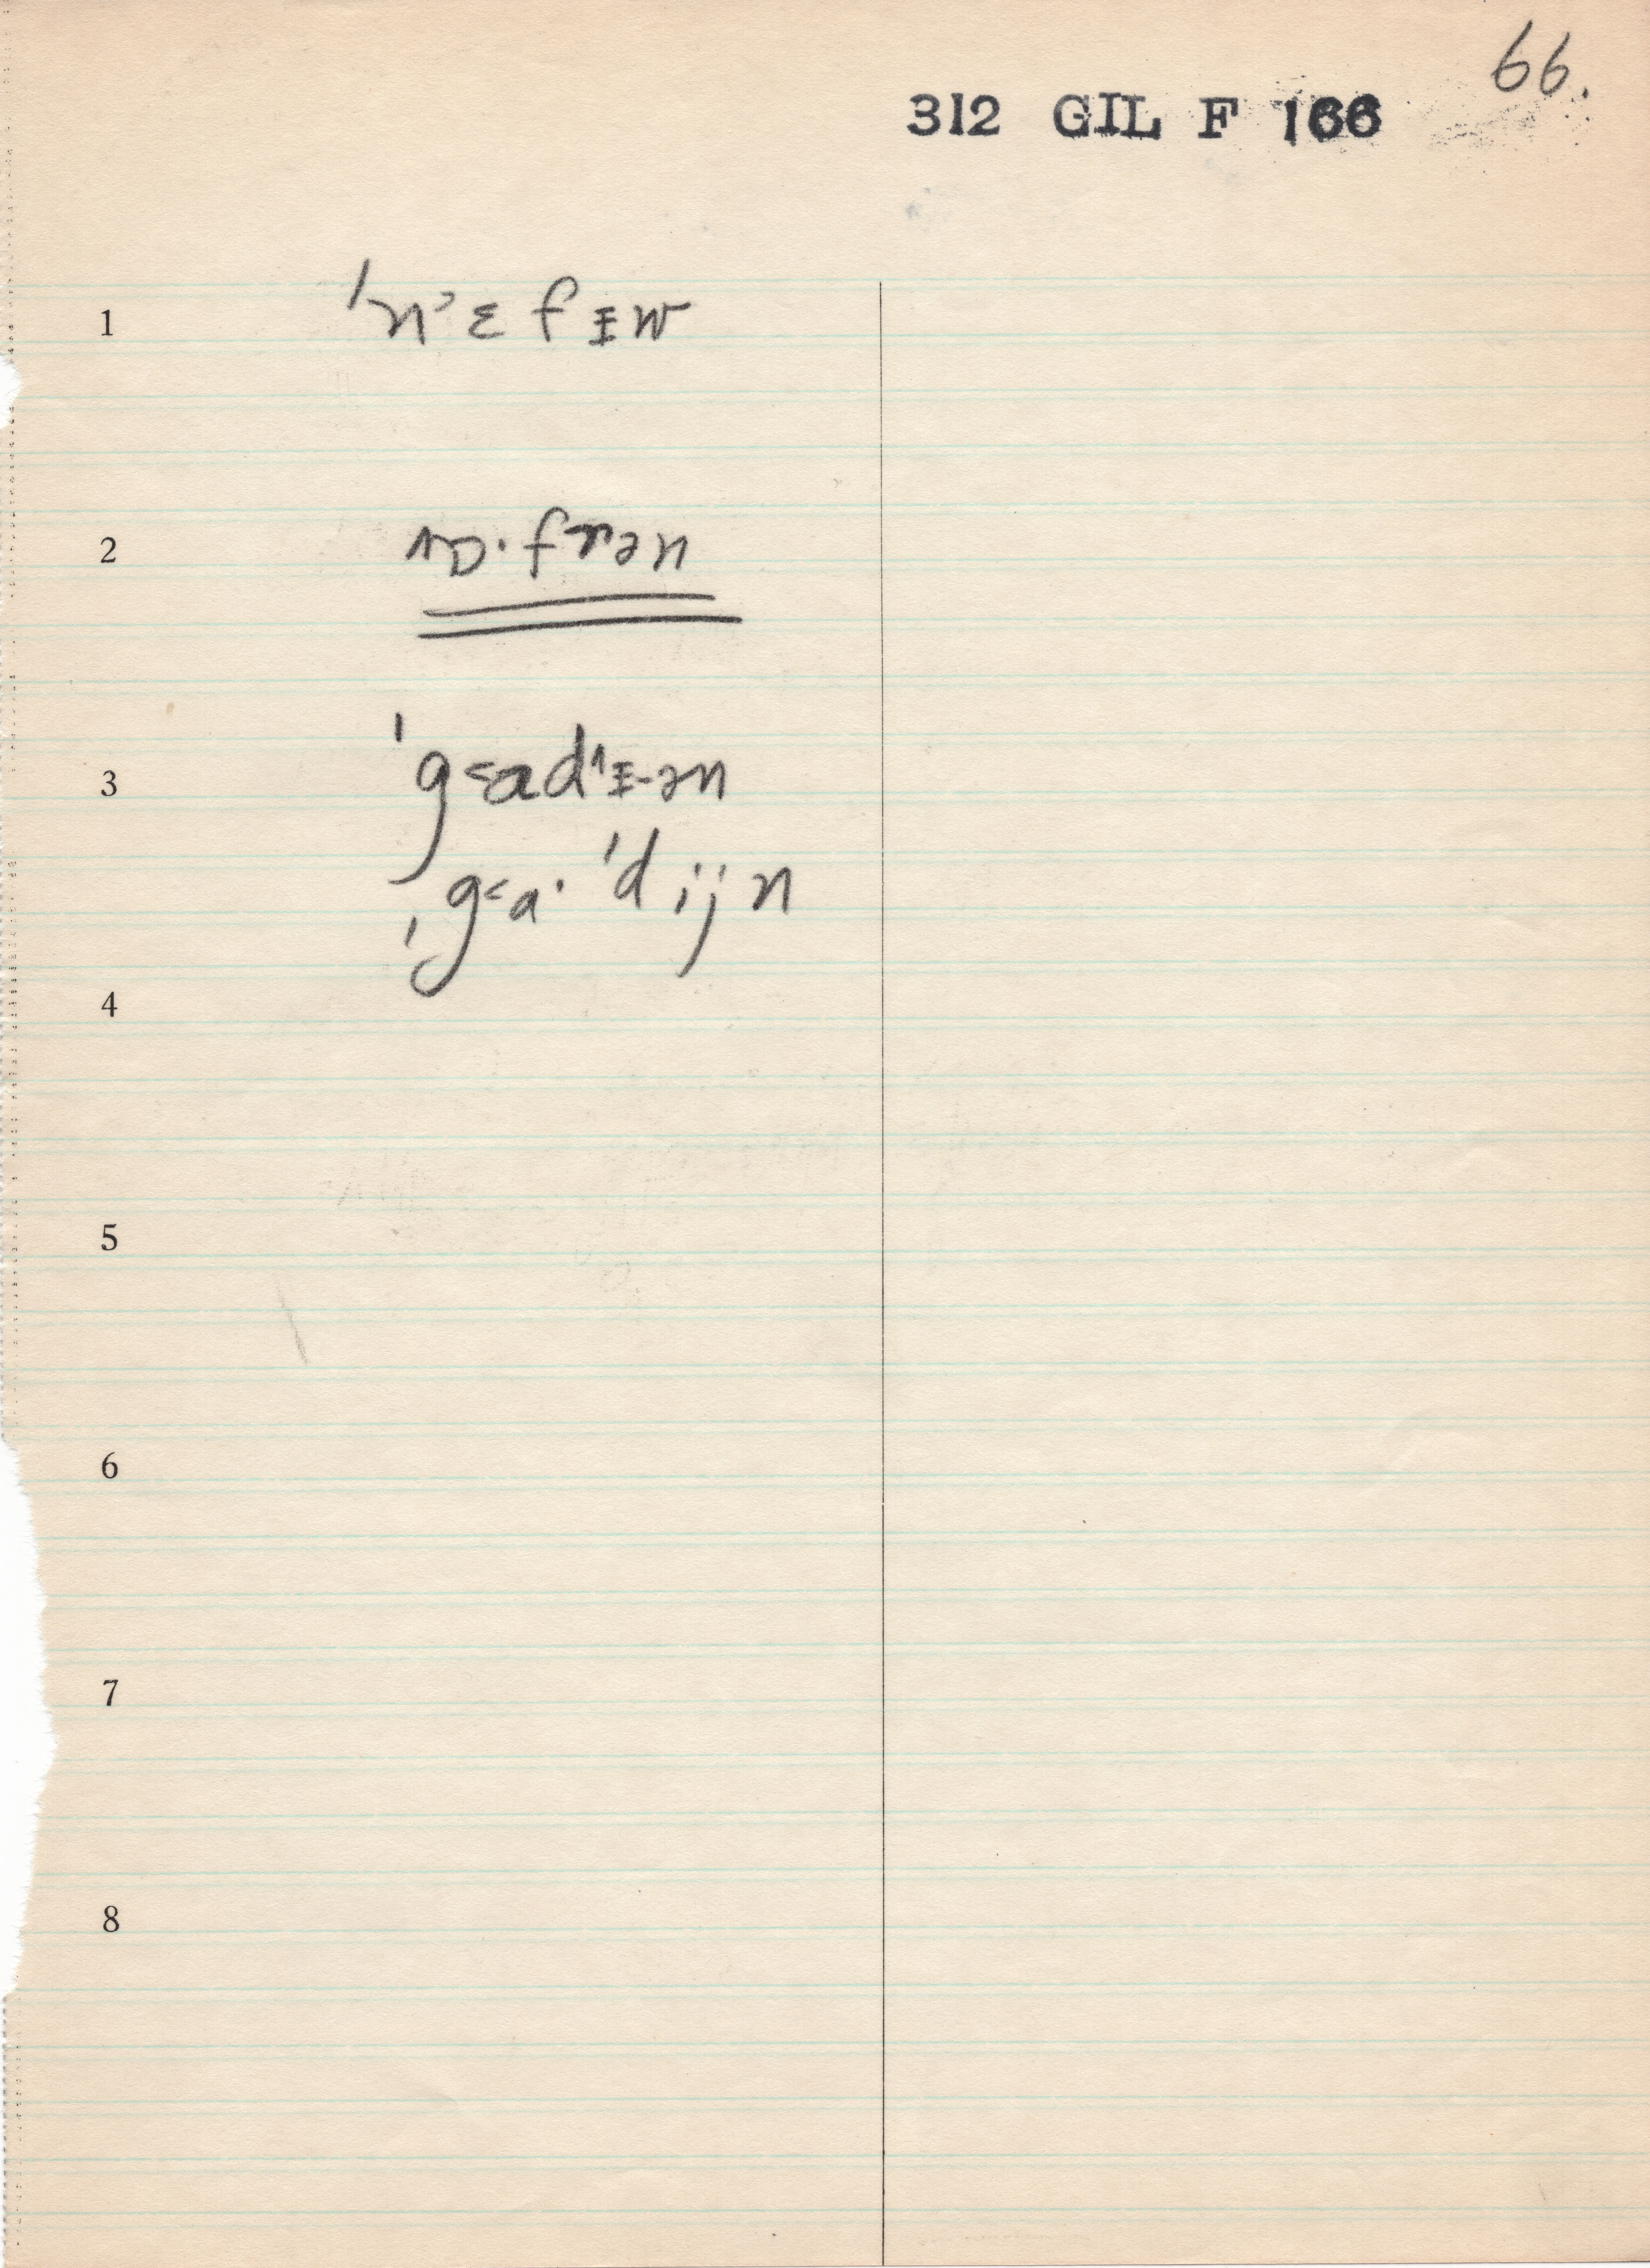 66.
312 GIL F 166
1 ˈnᵓɛfɪw
2 ɒ·frən
3 ˈg˂ad^ɪ-ən
ˈg˂a·ˈdijn
4
5
6
7
8